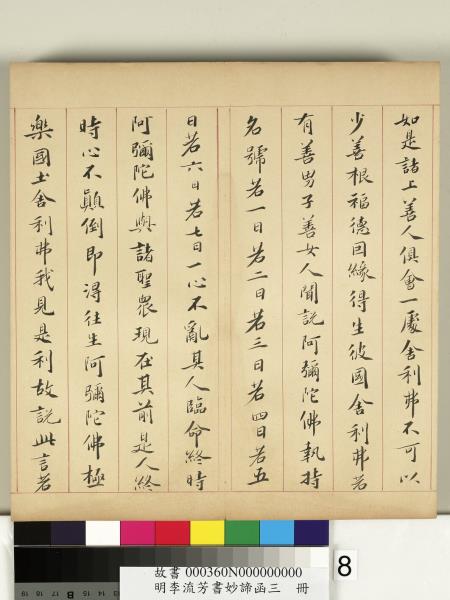 如是諸上善人俱會一處舍利弗不可以
少善根福德因緣得生彼國舍利弗若
有善男子善女人聞說阿彌陀佛執持
名號若一日若二日若三日若四日若五
日若六日若七日一心不亂其人臨命終時
阿彌陀佛與諸聖眾現在其前是人終
時心不顛倒即得往生阿彌陀佛極
樂國土舍利弗我見是利故說此言若
8
故書 000360N000000000
明李流芳書妙諦函三 冊
B